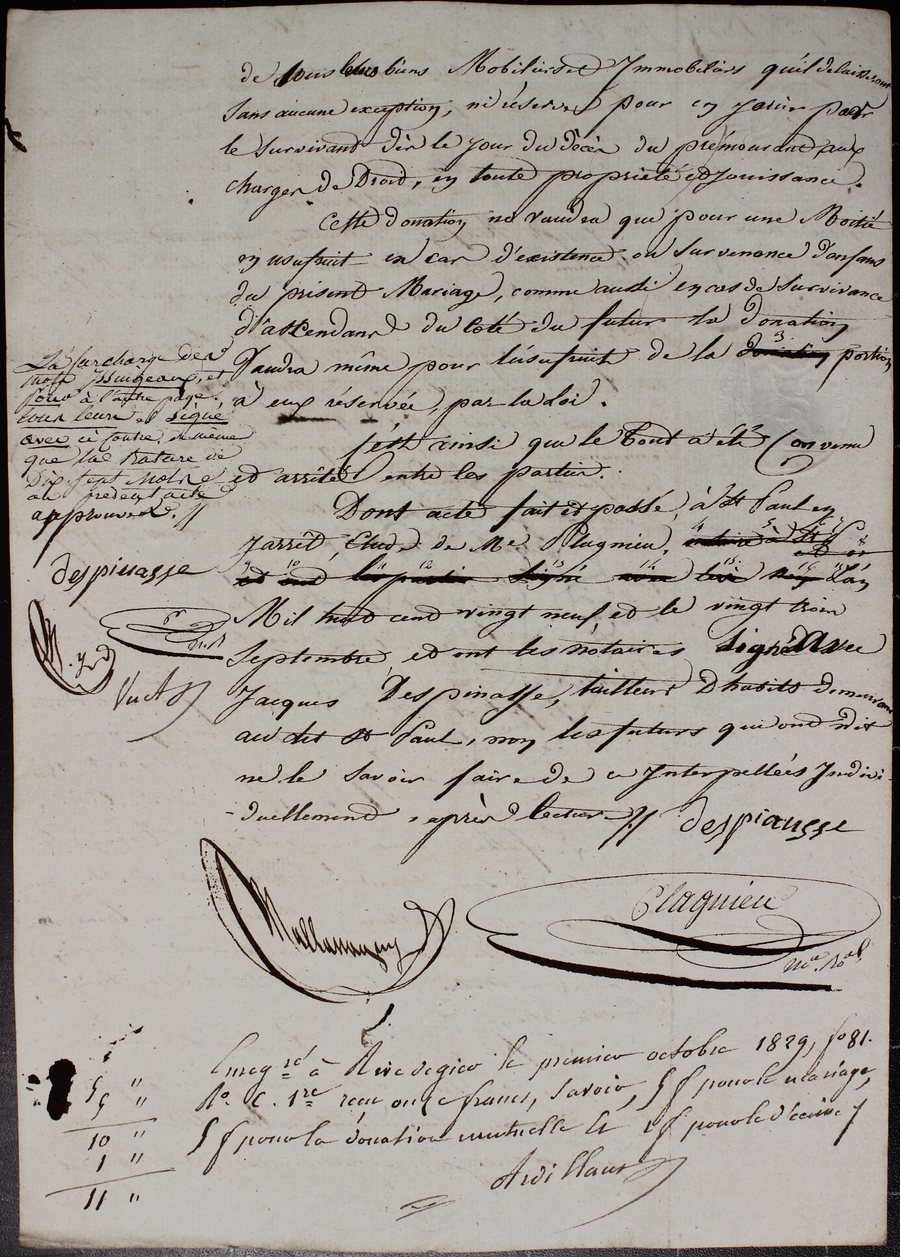 de tous leurs biens Mobiliers et Immobiliers qu'il delaisseront
sans aucune exception, ni réserve pour en jouir par
le survivant dès le jour du décès du prémourant aux
charges de Droit, en toute propriété et jouissance.
Cette donation ne vaudra que pour une Moitié
en usufruit en cas d'existence ou survenance d'enfans
du présent Mariage, comme aussi en cas de survivance
d'ascendans du coté du futur la donation
Vaudra même pour l'usufruit de la portion
à eux réservée, par la loi.
C'est ainsi que le tout a été Convenu
et arrêté entre les parties.
Dont acte fait et passé, à St Paul en
Jarrêt, Etude de Me Plagnieu, L'an
Mil huit cent vingt neuf, et le vingt trois
Septembre, et ont les notaires signé avec
Jacques Despinasse, tailleur D'habits demeurant
au dit St Paul, non les futurs qui ont dit
ne le savoir faire de ce Interpellés Indivi-
-duellement, après lecture //
despiausse
La surcharge des
mots Issingeaux, et
pour à l'autre page,
tous leurs et signé
avec ci contre, de même
que la rature de
Dix sept Mots
au present acte
approuvés. //
despinasse
Plagnieu
Nre Roal
Enregré à Rive de gier le premier octobre 1829, fo 81.
Ro. C. 1re reçu onze francs, savoir, 5 f pour le mariage,
5 f pour la donation mutuelle et 1 f pour le décime
Ardillau
5 "
5 "
10 "
1 "
11 "